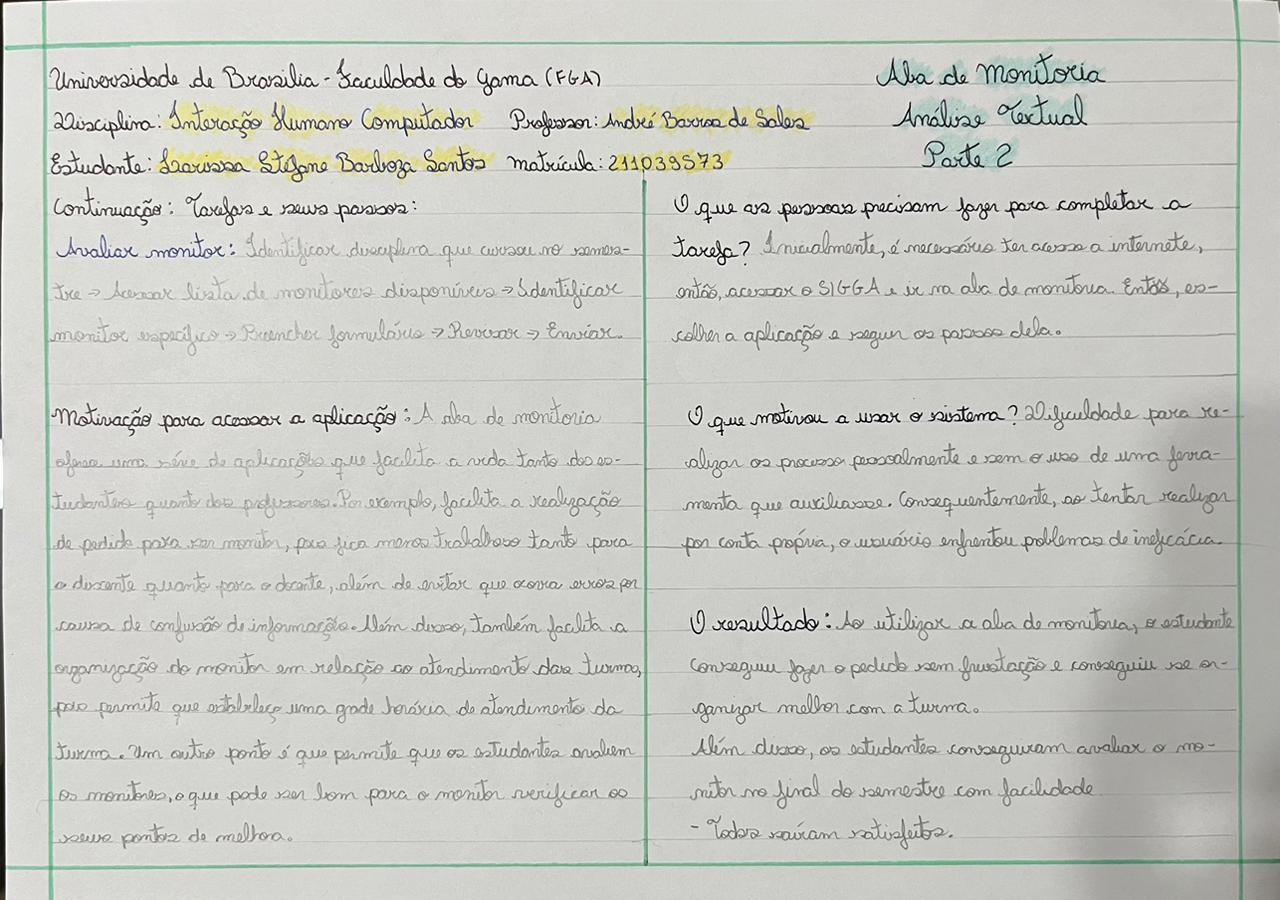 Universidade de Brasilia - Faculdade do Gama (FGA)
Aba de Monitoria
Disciplina: Interação Humano Computador Professor: André Barros de Sales
Análise Textual
Estudante: Larissa Stéfane Barboza Santos matrícula: 211039573
Parte 2
Continuação: Tarefas e seus passos:
Avaliar monitor: Identificar disciplina que cursou no semes-
tre → Acessar lista de monitores disponíveis → Identificar
monitor específico → Preencher formulário → Revisar → Enviar.
Motivação para acessar a aplicação: A aba de monitoria
oferece uma série de aplicações que facilita a vida tanto dos es-
tudantes quanto dos professores. Por exemplo, facilita a realização
de pedido para ser monitor, pois fica menos trabalhoso tanto para
o discente quanto para o docente, além de evitar que ocorra erros por
causa de confusão de informação. Além disso, também facilita a
organização do monitor em relação ao atendimento das turma,
pois permite que estabeleça uma grade horária de atendimento da
turma. Um outro ponto é que permite que os estudantes avaliem
os monitores, o que pode ser bom para o monitor verificar os
seus pontos de melhora.
O que as pessoas precisam fazer para completar a
tarefa? Inicialmente, é necessário ter acesso a internete,
então, acessar o SIGGA e ir na aba de monitoria. Então, es-
colher a aplicação e seguir os passos dela.
O que motivou a usar o sistema? Dificuldade para re-
alizar os processo pessoalmente e sem o uso de uma ferra-
menta que auxiliasse. Consequentemente, ao tentar realizar
por conta própria, o usuário enfrentou problemas de ineficácia.
O resultado: Ao utilizar a aba de monitoria, o estudante
conseguiu fazer o pedido sem frustação e conseguiu se or-
ganizar melhor com a turma.
Além disso, os estudantes conseguiram avaliar o mo-
nitor no final do semestre com facilidade
- Todos saíram satisfeitos.